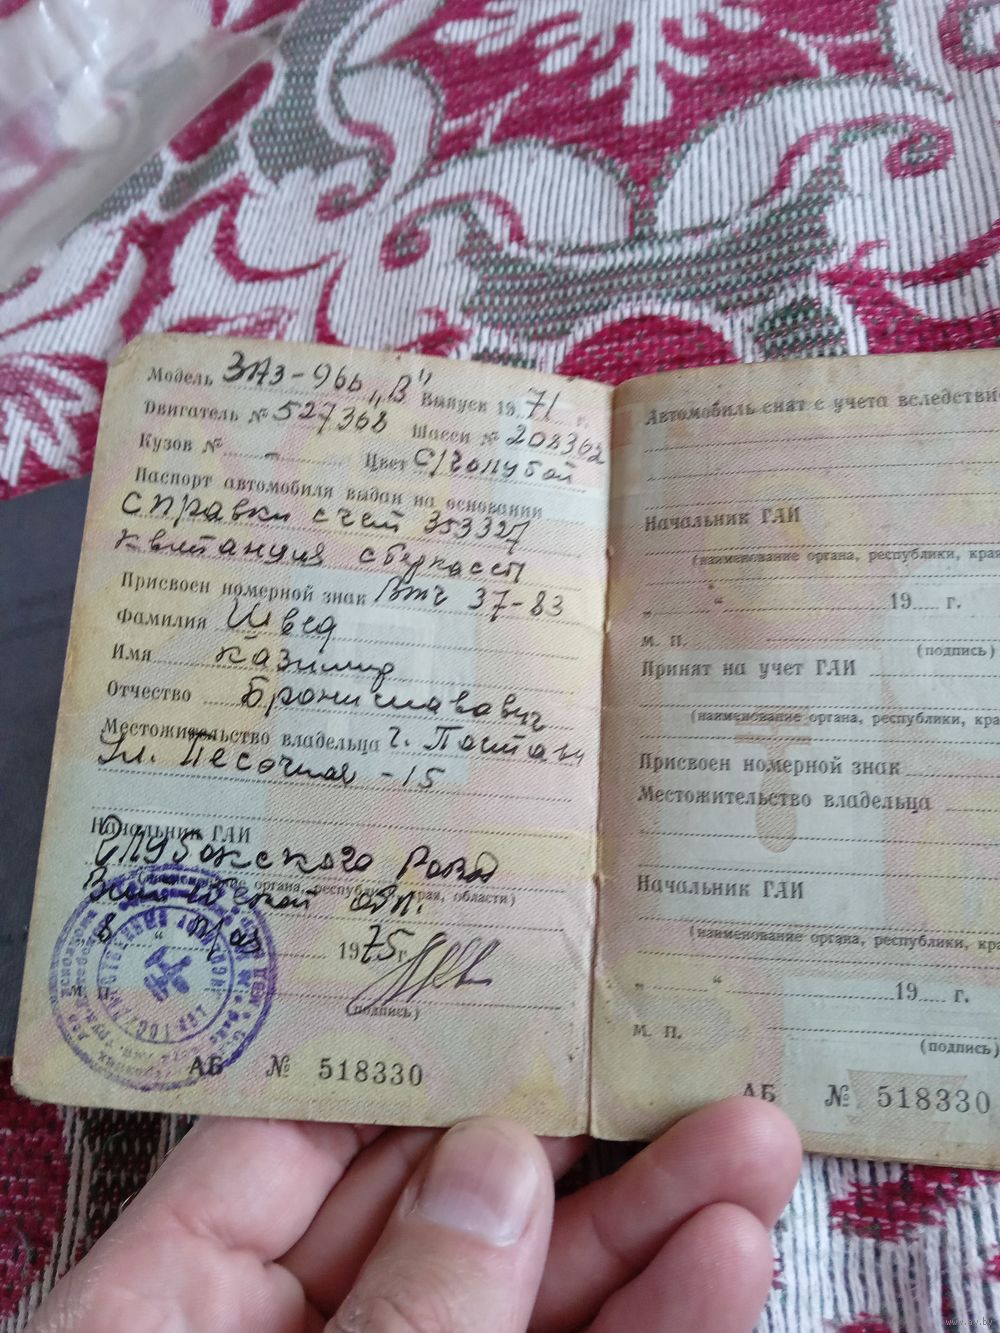 Модель ЗАЗ-966 „В" Выпуск 1971 г.
Двигатель № 527368 Шасси № 208362
Кузов № - Цвет С/голубой
Паспорт автомобиля выдан на основании
справки счет 353327
квитанция сберкассы
Присвоен номерной знак ВТЧ 37-83
Фамилия Швед
Имя Казимир
Отчество Брониславович
Местожительство владельца г. Поставы
ул. Песочная - 15
Начальник ГАИ
Глубокского РОВД
(наименование органа, республики, края, области)
Витебской обл.
„ 8 “ 1975 г.
М. П.
(подпись)
АБ № 518330
Автомобиль снят с учета вследствие
Начальник ГАИ
(наименование органа, республики, края
„ “ 19 г.
М. П.
(подпись)
Принят на учет ГАИ
(наименование органа, республики, кра
Присвоен номерной знак
Местожительство владельца
Начальник ГАИ
(наименование органа, республики, кра
„ “ 19 г.
М. П.
(подпись)
АБ № 518330
www.av.by